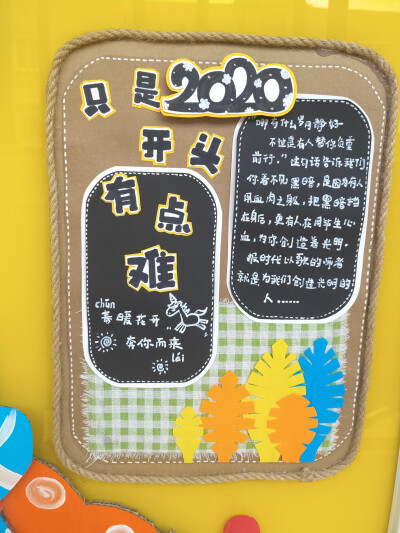 只是2020
开头
有点
难
chūn
春暖花开
奔你而来
lái
“哪有什么岁月静好
不过是有人替你负重
前行。”这句话告诉我们
你看不见黑暗,是因为有人
用血肉之躯,把黑暗挡
在身后,更有人在用毕生心
血,为你创造着光明.
报时代以歌的师者
就是为我们创造光明的
人……